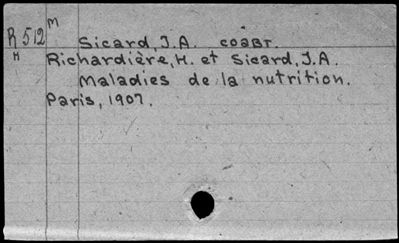 R 512 M
H
Sicard, J.A. соавт.
Richardière, H. et Sicard, J.A.
Maladies de la nutrition.
Paris, 1907.